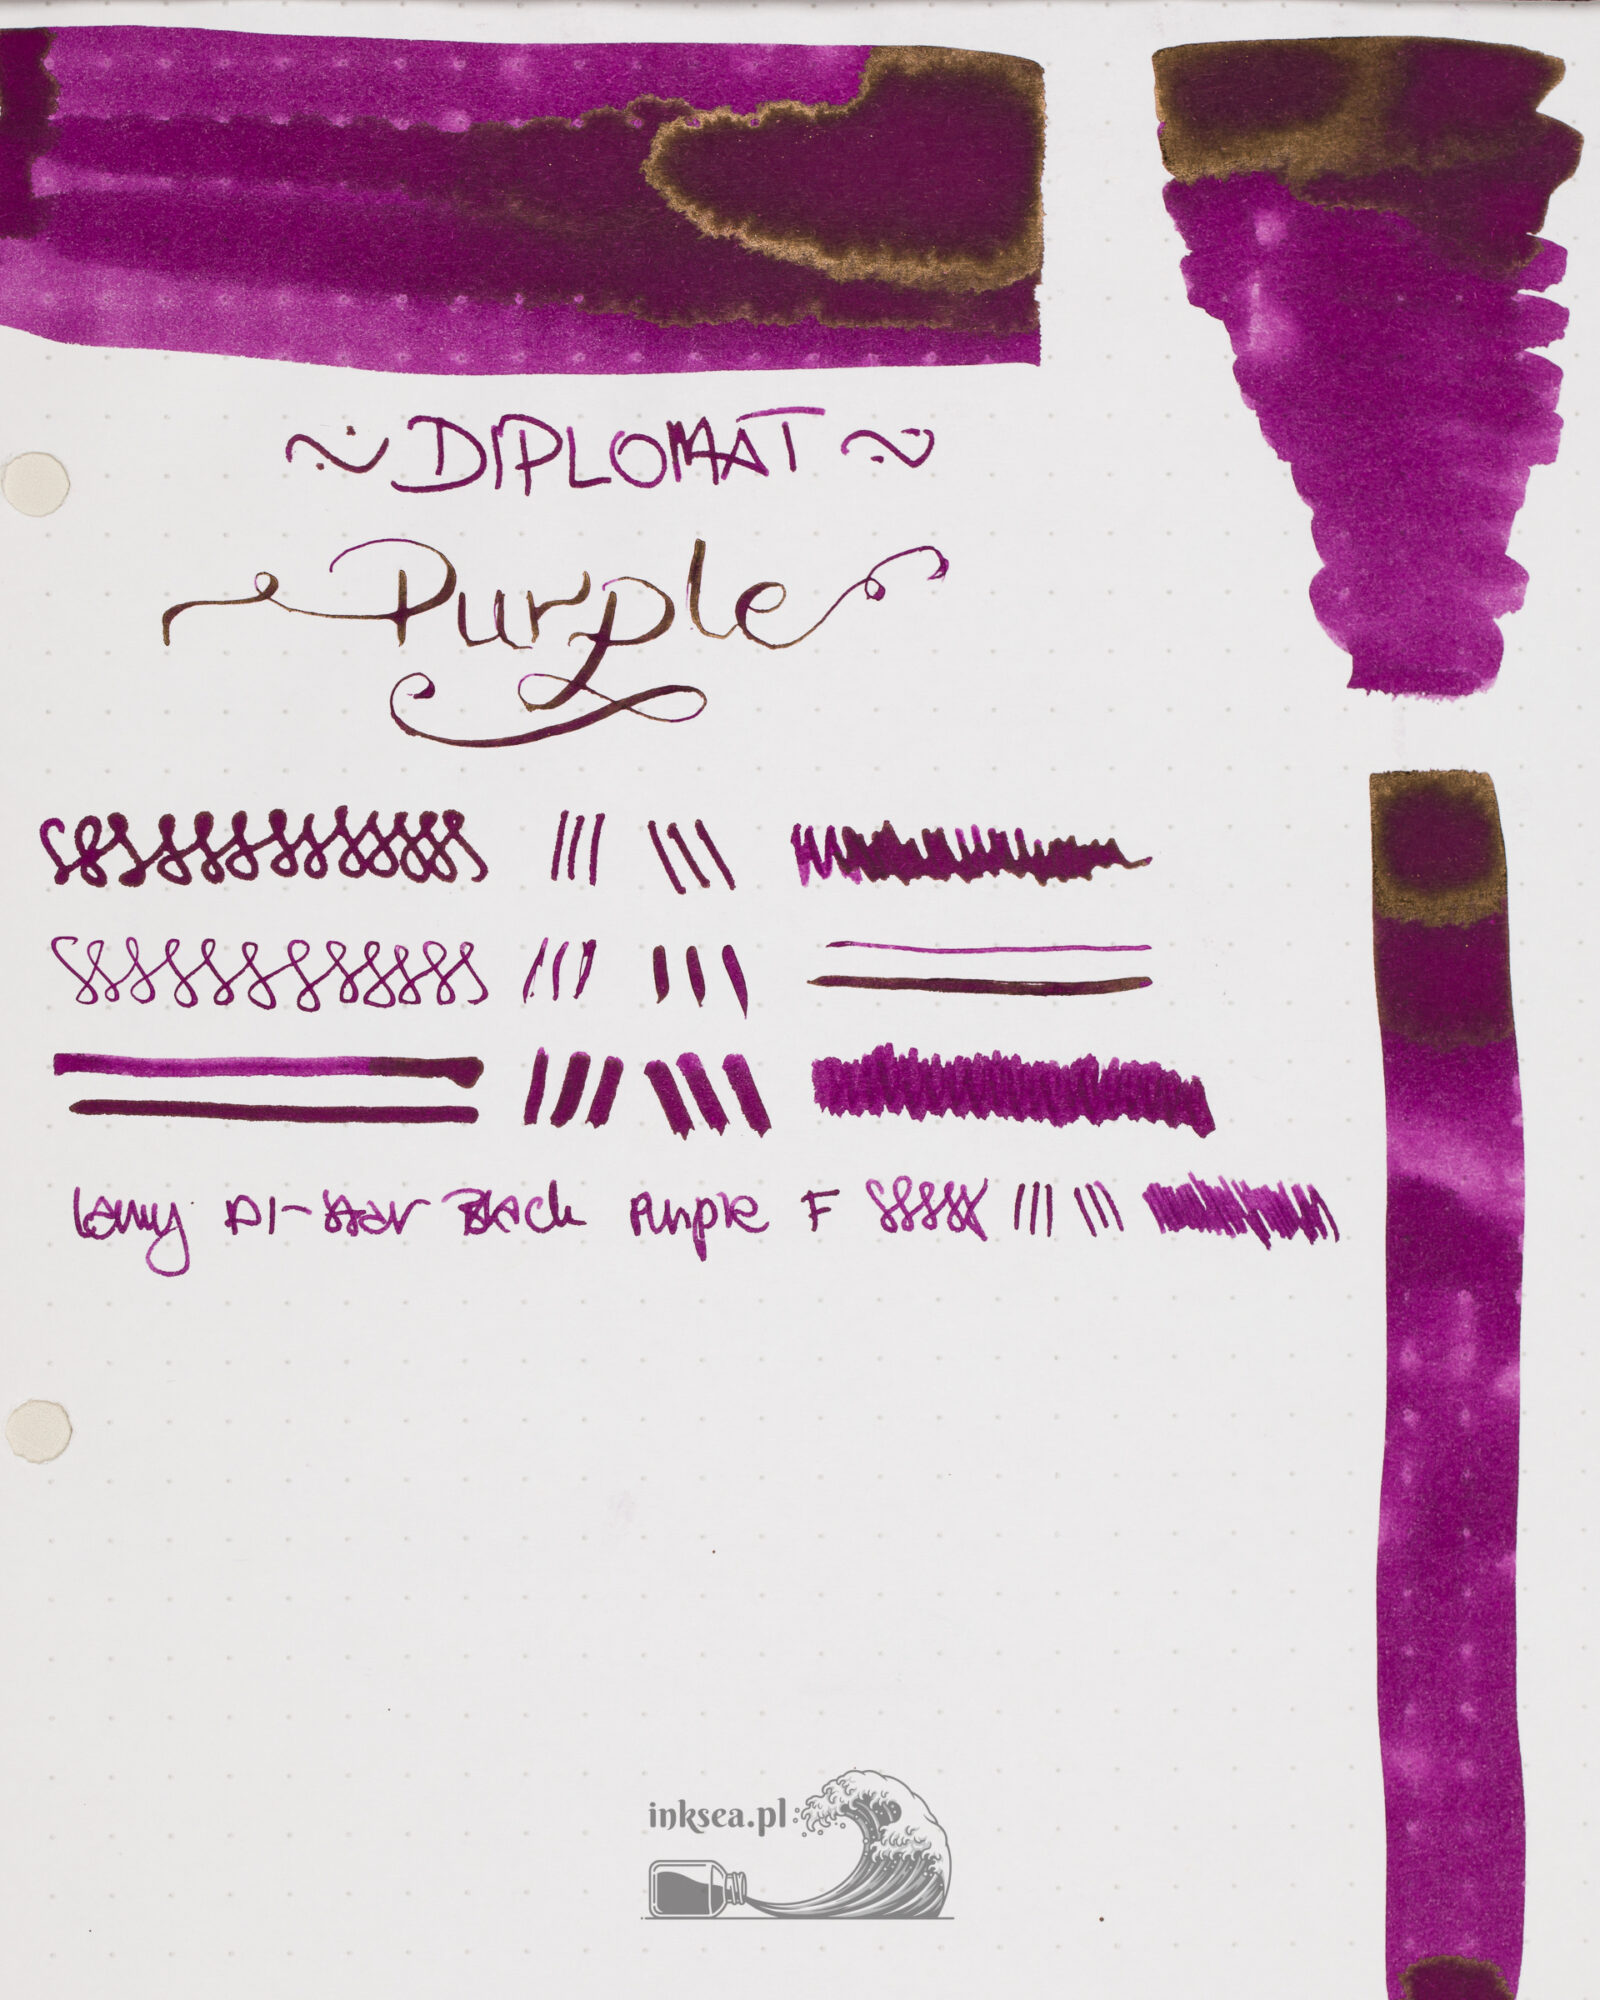 ~ DIPLOMAT ~
Purple
Lamy Al-Star Black Purple F
inksea.pl